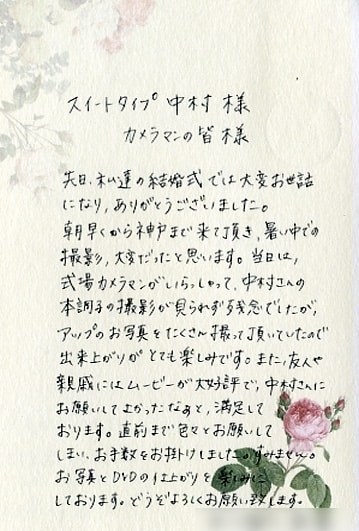 スイートタイプ 中村 様
カメラマンの皆様
先日、私達の結婚式では大変お世話
になり、ありがとうございました。
朝早くから神戸まで来て頂き、暑い中での
撮影、大変だったと思います。当日は、
式場カメラマンがいらっしゃって、中村さんの
本調子の撮影が見られず残念でしたが、
アップのお写真をたくさん撮って頂いていたので
出来上がりがとても楽しみです。また、友人や
親戚にはムービーが大好評で、中村さんに
お願いしてよかったなぁと、満足して
おります。直前まで色々とお願いして
しまい、お手数をお掛けしました。すみません。
お写真とDVDの仕上がりを楽しみに
しております。どうぞよろしくお願い致します。